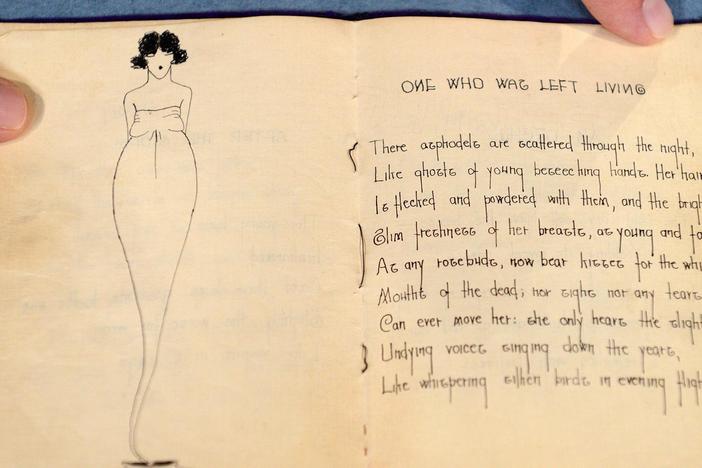 ONE WHO WAS LEFT LIVING
There asphodels are scattered through the night,
Like ghosts of young beseeching hands. Her hair
Is flecked and powdered with them, and the
Slim freshness of her breasts, as young and
As any rosebuds, now bear kisses for the
Mouths of the dead; nor sighs nor any tears
Can ever move her: she only hears the
Undying voices singing down the years,
Like whispering silken birds in evening